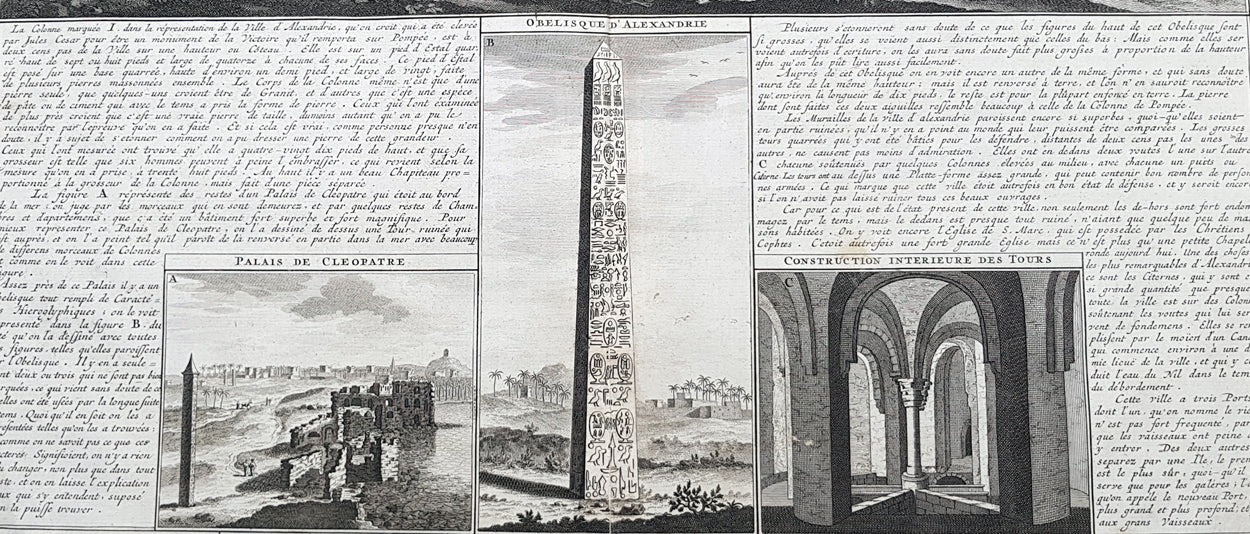 La Colonne marquée I. dans la réprésentation de la Ville d'Alexandrie, qu'on croit qui a été elevée
par Jules Cesar pour être un monument de la Victoire qu'il remporta sur Pompée, est à
deux cens pas de la Ville sur une hauteur ou Côteau. Elle est sur un pied d'Estal quar
ré haut de sept ou huit pieds et large de quatorze à chacune de ses faces. Ce pied d'Estal
est posé sur une base quarrée, haute d'environ un demi pied, et large de vingt, faite
de plusieurs pierres massonnées ensemble. Le Corps de la Colonne même n'est que d'une
pierre seule, que quelques-uns croient être de Granit, et d'autres que c'est une espèce
de pâte ou de ciment qui avec le tems a pris la forme de pierre. Ceux qui l'ont examinée
de plus près croient que c'est une vraie pierre de taille, dumoins autant qu'on a pu le
reconnoître par l'epreuve qu'on en a faite. Et si cela est vrai, comme personne presque n'en
doute, il y a sujet de s'etonner comment on a pu dresser une pierre de cette grandeur.
Ceux qui l'ont mesurée ont trouvé qu'elle a quatre-vingt dix pieds de haut, et que sa
grosseur est telle que six hommes peuvent à peine l'embrasser, ce qui revient selon la
mesure qu'on en a prise, à trente huit pieds. Au haut il y a un beau Chapiteau pro-
portionné à la grosseur de la Colonne, mais fait d'une pièce séparée.
La figure A réprésente des restes d'un Palais de Cléopatre qui étoit au bord
de la mer; on juge par des morceaux qui en sont demeurez, et par quelques restes de Cham
bres et d'apartemens, que ç'a été un bâtiment fort superbe et fort magnifique. Pour
mieux representer ce Palais de Cleopatre, on l'a dessiné de dessus une Tour ruinée qui
est auprès, et on l'a peint tel qu'il paroît de là renversé en partie dans la mer avec beaucoup
de différens morceaux de Colonnes
comme on le voit dans cette
figure.
Assez près de ce Palais il y a un
Obelisque tout rempli de Caracté-
res Hieroglyphiques; on le voit
représenté dans la figure B. du
té qu'on l'a dessiné avec toutes
s figures, telles qu'elles paroissent
r l'Obelisque. Il y en a seule-
ent deux ou trois qui ne sont pas bien
arquées, ce qui vient sans doute de ce
elles ont été usées par la longue suite
tems. Quoi qu'il en soit on les a
résentées telles qu'on les a trouvées:
comme on ne savoit pas ce que ces
cteres Signifioient, on n'y a rien
u changer, non plus que dans tout
ste, et on en laisse l'explication
ux qui s'y entendent, suposé
n la puisse trouver.
PALAIS DE CLEOPATRE
A
OBELISQUE D'ALEXANDRIE
B
Plusieurs s'etonneront sans doute de ce que les figures du haut de cet Obelisque sont
si grosses, qu'elles se voient aussi distinctement que celles du bas: Mais comme elles ser
voient autrefois d'ecriture, on les aura sans doute fait plus grosses à proportion de la hauteur
afin qu'on les pût lire aussi facilement.
Auprès de cet Obelisque on en voit encore un autre de la même forme, et qui sans doute
aura été de la même hauteur: mais il est renversé à terre, et l'on n'en sauroit reconnoître
qu'environ la longueur de dix pieds, le reste est pour la plûpart enfoncé en terre. La pierre
dont sont faites ces deux aiguilles ressemble beaucoup à celle de la Colonne de Pompée.
Les Murailles de la ville d'alexandrie paroissent encore si superbes, quoi-qu'elles soient
en partie ruinées, qu'il n'y en a point au monde qui leur puissent être comparées. Les grosses
tours quarrées qui y ont été bâties pour les défendre, distantes de deux cens pas les unes des
autres, ne causent pas moins d'admiration. Elles ont en dedans deux voutes l'une sur l'autre
C chacune soûtenuës par quelques Colonnes elevées au milieu, avec chacune un puits ou
Citerne. Les tours ont au dessus une Platte-forme assez grande, qui peut contenir bon nombre de person
nes armées. Ce qui marque que cette ville étoit autrefois en bon état de défense, et y seroit encor
si l'on n'avoit pas laissé ruiner tous ces beaux ouvrages.
Car pour ce qui est de l'état present de cette ville, non seulement les de-hors sont fort endom
magez par le tems, mais le dedans est presque tout ruiné, n'aiant que quelque peu de mai
sons habitées. On y voit l'Eglise de S. Marc, qui est possedée par les Chrétiens
Cophtes. C'etoit autrefois une fort grande Eglise mais ce n'est plus qu'une petite Chapell
ronde aujourd'hui. Une des choses
les plus remarquables d'Alexandri
ce sont les Citernes, qui y sont e
si grande quantité que presque
toute la ville est sur des Colon
soûtenant les voutes qui lui ser
vent de fondemens. Elles se re
plissent par le moien d'un Cana
qui commence environ à une d
mie lieuë de la ville, et qui y co
duit l'eau du Nil dans le tem
du débordement.
Cette ville a trois Ports
dont l'un, qu'on nomme le vi
n'est pas fort frequente, par
que les vaisseaux ont peine
y entrer. Des deux autres
separez par une Ile, le pren
est le plus sûr, quoi-qu'il
serve que pour les galères; l'
qu'on apèle le nouveau Port,
plus grand et plus profond, et
aux grans Vaisseaux.
CONSTRUCTION INTERIEURE DES TOURS
C